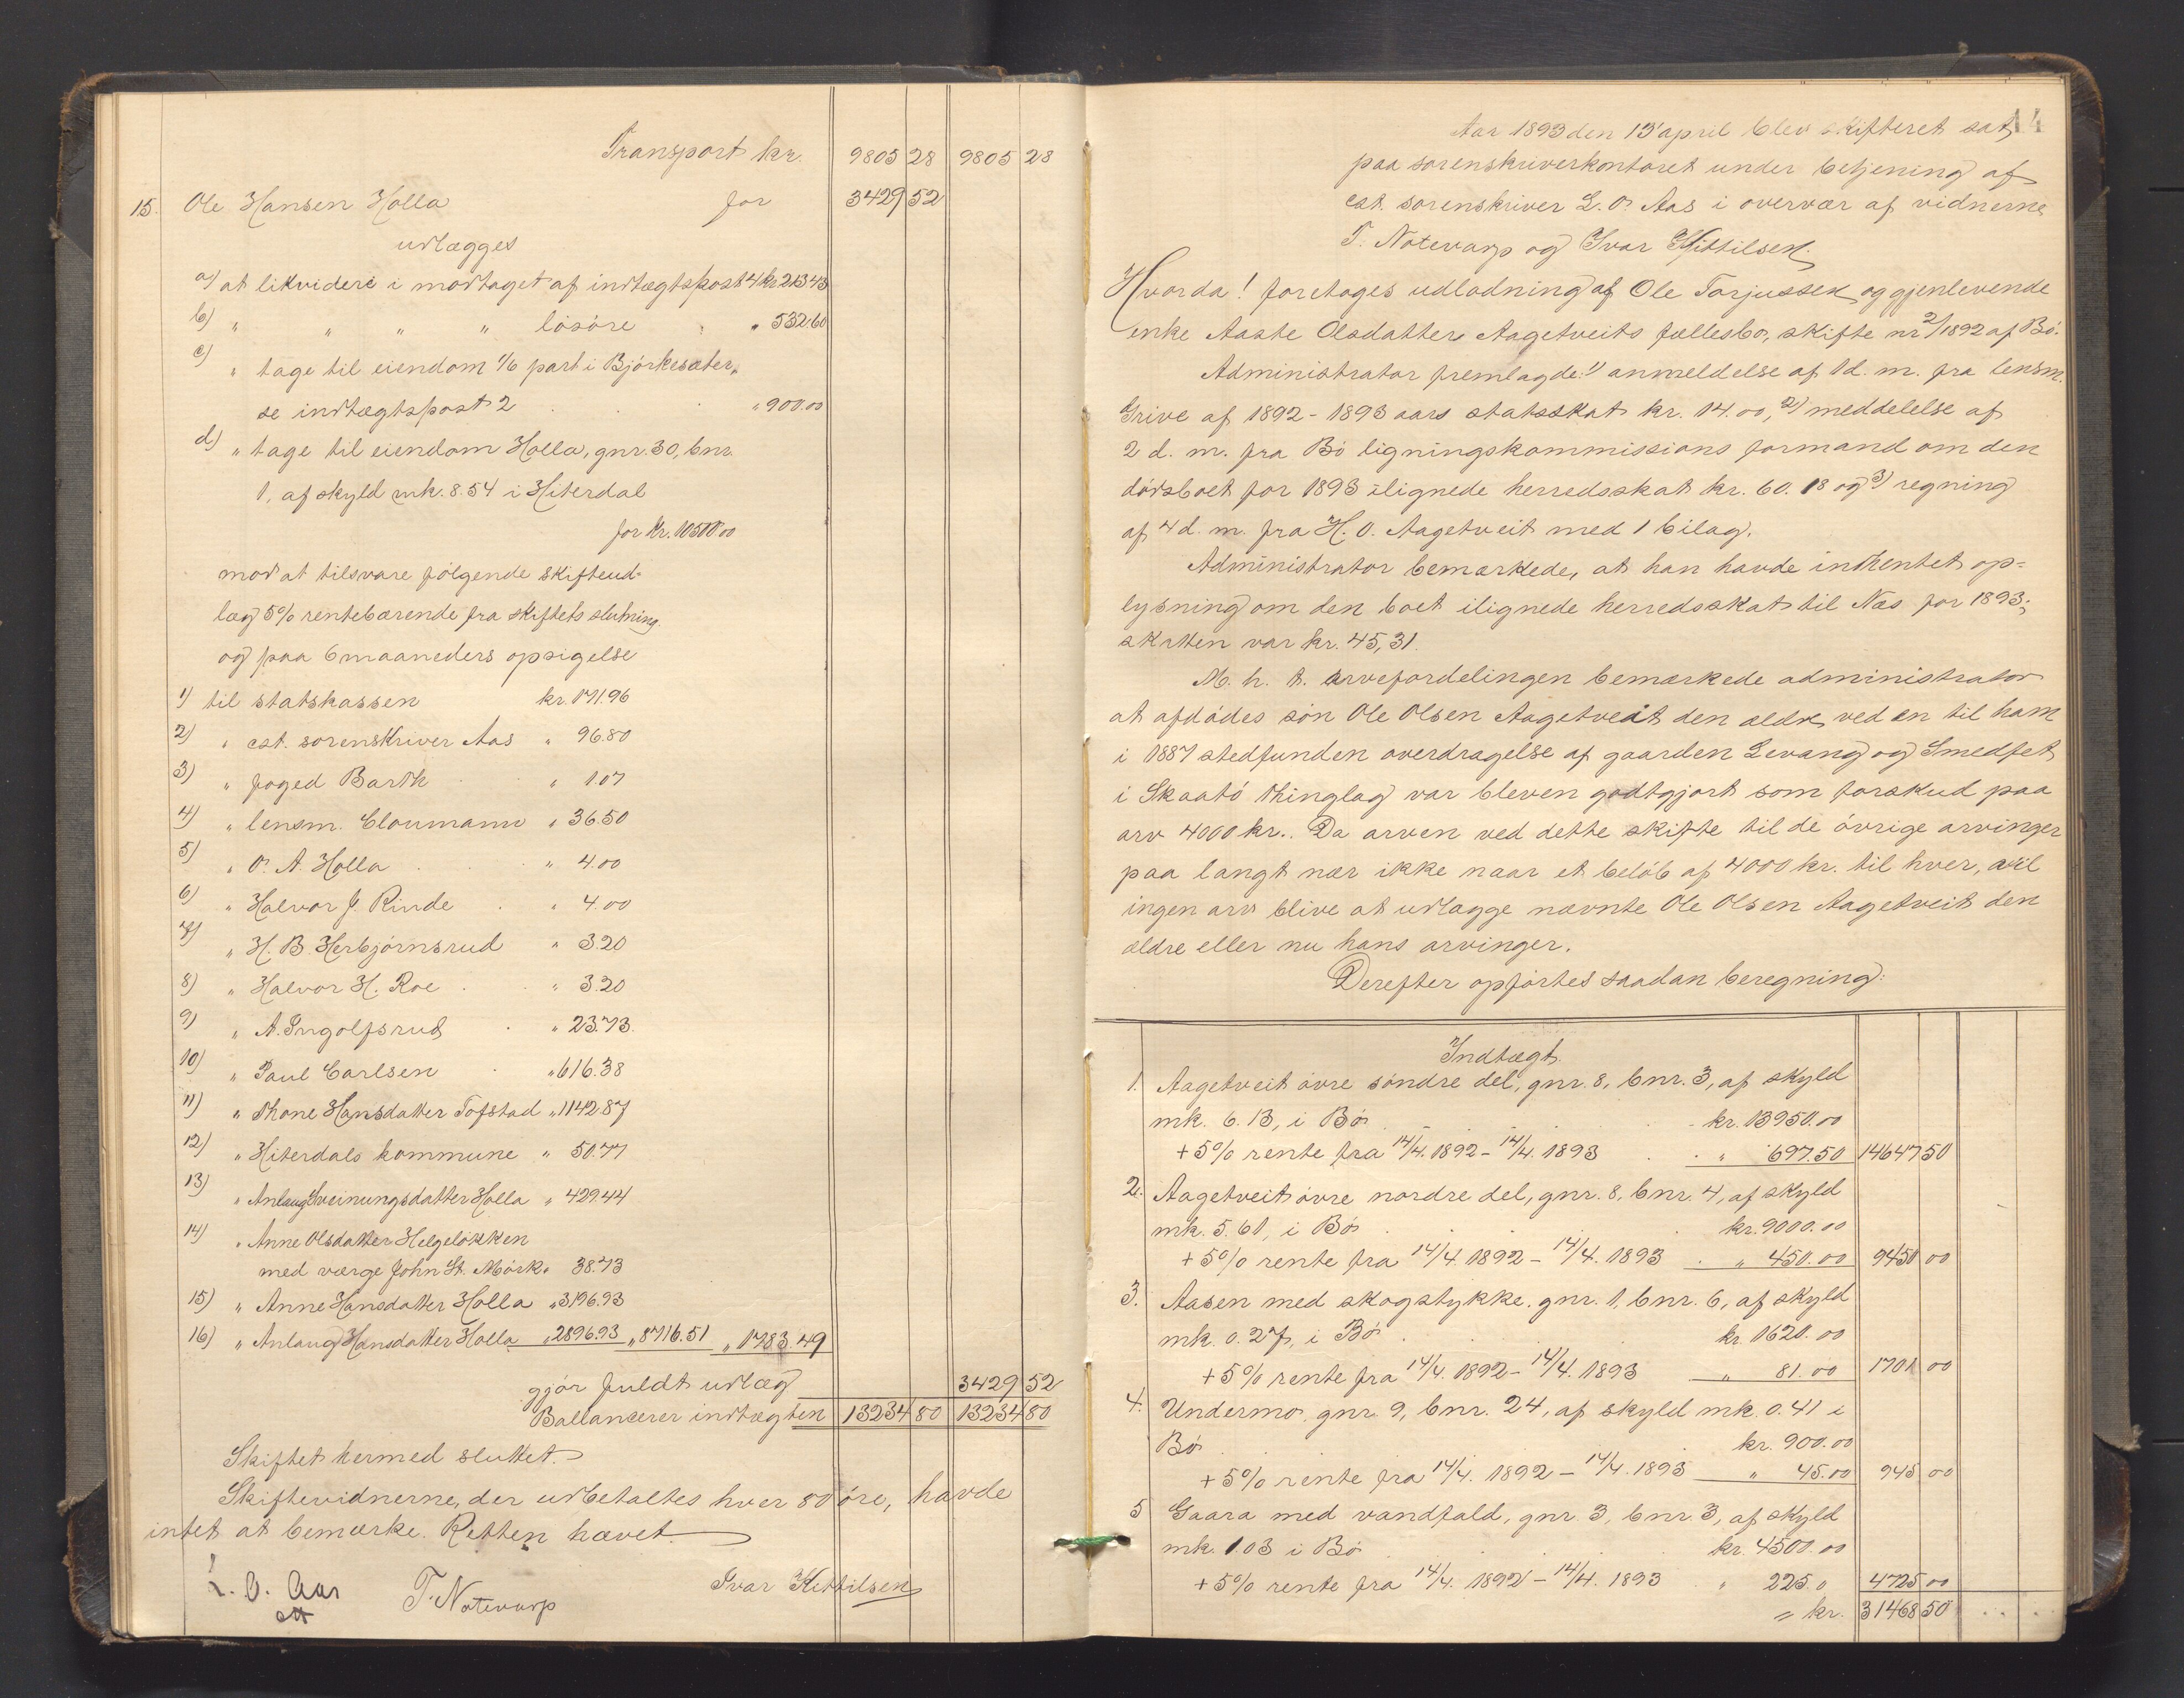 Transport kr. 9805 28 9805 28
15. Ole Hansen Holla for 3429 52
udlægges
a) at likvidere i modtaget af indtægtspost 4 kr 213 43
b) " " " " løsøre " 532.60
c) " tage til eiendom 1/6 part i Bjørkesæter,
se indtægtspost 2 " 900.00
d) " tage til eiendom Holla, gnr. 30, bnr.
1, af skyld mk. 8.54 i Hiterdal
for kr. 10500.00
mod at tilsvare følgende skifteud-
læg 5% rentebærende fra skiftets slutning
og paa 6 maaneders opsigelse
1) til statskassen kr. 171.96
2) " cst. sorenskriver Aas " 96.80
3) " foged Barth " 1.07
4) " lensm. Cloumann " 36.50
5) " O. A. Holla " 4.00
6) " Halvor J. Rinde " 4.00
7) " H. B. Herbjørnsrud " 3.20
8) " Halvor H. Roe " 3.20
9) " A. Ingolfsrud " 23.73
10) " Paul Carlsen " 616.38
11) " Thone Hansdatter Tofstad " 1142.87
12) " Hiterdals kommune " 50.77
13) " Anlaug Sveinungsdatter Holla " 429.44
14) " Anne Olsdatter Helgeløkken
med værge John St. Mørk " 38.73
15) " Anne Hansdatter Holla " 3196.93
16) " Anlaug Hansdatter Holla " 2896.93 " 8716.51 " 1783.49
gjør fuldt udlæg 3429 52
Ballancerer indtægten 13234 80 13234 80
Skiftet hermed sluttet.
Skiftevidnerne, der udbetaltes hver 80 øre, havde
intet at bemærke. Retten hævet.
L. O. Aas T. Notevarp Ivar Kittilsen
cst
14
Aar 1893 den 13 april blev skifteret sat
paa sorenskriverkontoret under betjening af
cst. sorenskriver L. O. Aas i overvær af vidnerne
T. Notevarp og Ivar Kittilsen.
Hvorda! foretages udlodning af Ole Torjussen og gjenlevende
enke Aaste Olsdatter Aagetveits fællesbo, skifte nr 2/1892 af Bø.
Administrator fremlagde: 1) anmeldelse af 1 d. m. fra lensm.
Grive af 1892-1893 aars statsskat kr. 14.00, 2) meddelelse af
2 d. m. fra Bø ligningskommissions formand om den
dødsboet for 1893 ilignede herredsskat kr. 60.18 og 3) regning
af 4 d. m. fra H. O. Aagetveit med 1 bilag.
Administrator bemærkede, at han havde indhentet op-
lysning om den boet ilignede herredsskat til Næs for 1893;
skatten var kr. 45,31.
M. h. t. arvefordelingen bemærkede administrator
at afdødes søn Ole Olsen Aagetveit den ældre ved en til ham
i 1887 stedfunden overdragelse af gaarden Levang og Smedfet
i Skaatø thinglag var bleven godtgjort som forskud paa
arv 4000 kr.. Da arven ved dette skifte til de øvrige arvinger
paa langt nær ikke naar et beløb af 4000 kr. til hver, vil
ingen arv blive at udlægge nævnte Ole Olsen Aagetveit den
ældre eller nu hans arvinger.
Derefter opførtes saadan beregning:
Indtægt.
1. Aagetveit øvre søndre del, gnr. 8, bnr. 3, af skyld
mk. 6.13, i Bø kr. 13950.00
+ 5% rente fra 14/4. 1892 - 14/4. 1893 " 697.50 14647 50
2. Aagetveit øvre nordre del, gnr. 8, bnr. 4, af skyld
mk. 5.61, i Bø kr. 9000.00
+ 5% rente fra 14/4. 1892 - 14/4. 1893 " 450.00 9450 00
3. Aasen med skogstykke, gnr. 1, bnr. 6, af skyld
mk. 0.27, i Bø kr. 1620.00
+ 5% rente fra 14/4. 1892 - 14/4. 1893 " 81.00 1701 00
4. Undermo, gnr. 9, bnr. 24, af skyld mk. 0.41 i
Bø kr. 900.00
+ 5% rente fra 14/4. 1892 - 14/4. 1893 " 45.00 945 00
5 Gaara med vandfald, gnr. 3, bnr. 3, af skyld
mk. 1.03 i Bø kr. 4500.00
+ 5% rente fra 14/4. 1892 - 14/4. 1893 " 225.0 4725 00
= kr. 31468 50